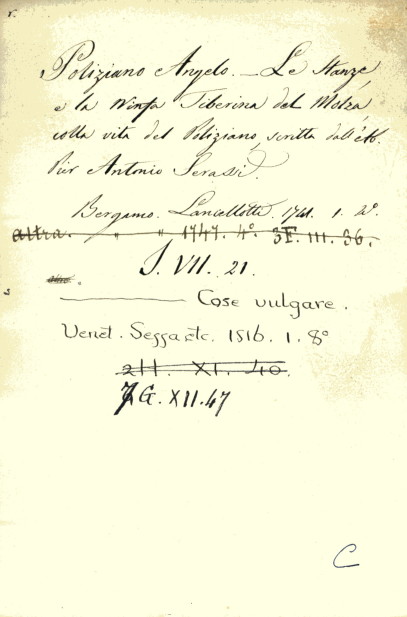 Poliziano Angelo. — Le Stanze,
e la Ninfa Tiberina del Molza,
colla vita del Poliziano, scritta dall'Ab.
Pier Antonio Serassi.
Bergamo. Lancellotti. 1741. 1. 4°.
altra. " " 1747. 4°. 3E. III. 36.
J. VII. 21.
Cose vulgare.
Venet. Sessa etc. 1516. 1. 8°
2H. XI. 40.
7G. XII. 47
C